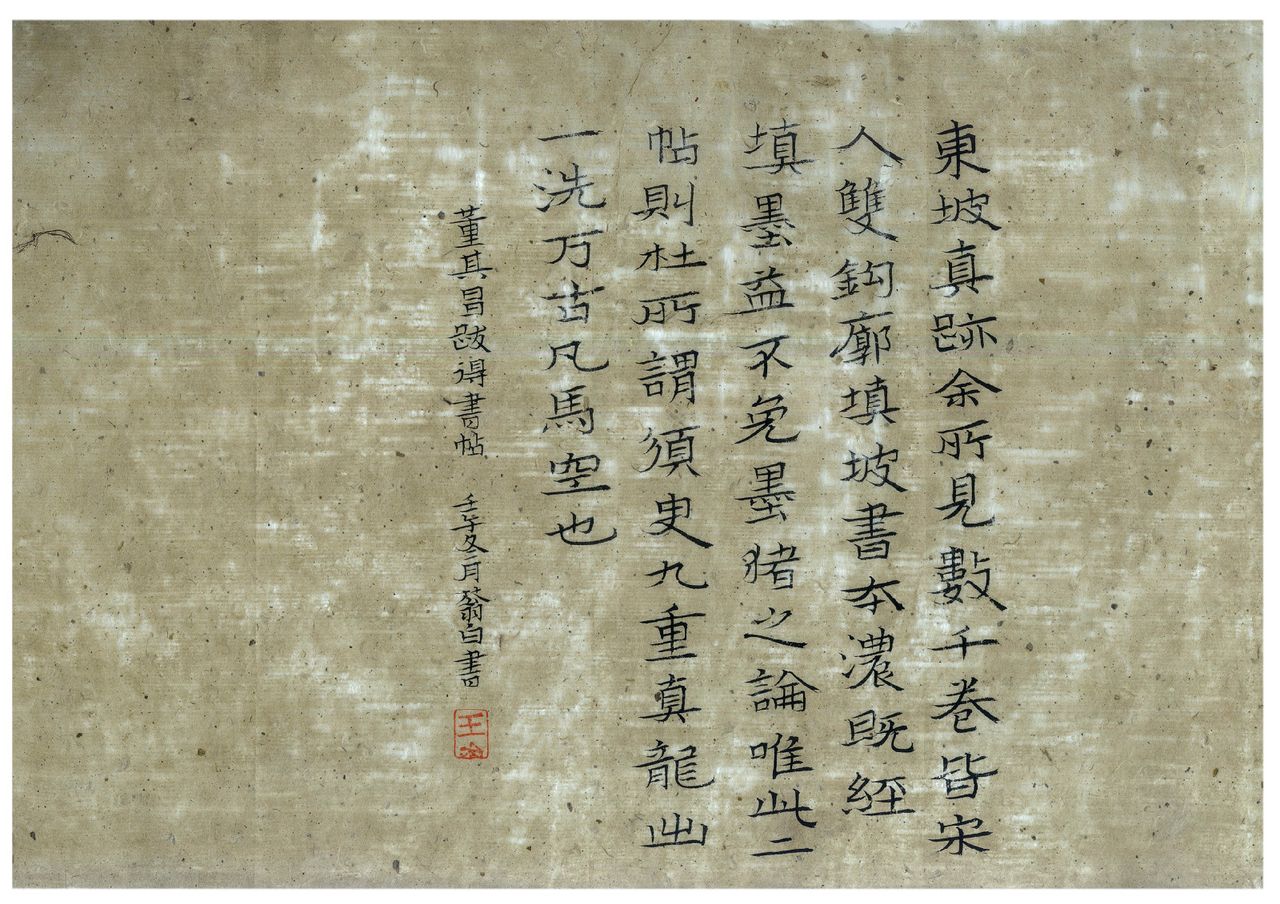 東坡真跡余所見數千卷皆宋
人雙鈎廓填坡書本濃既經
填墨益不免墨猪之論唯此二
帖則杜所謂須臾九重真龍出
一洗万古凡馬空也
董其昌跋得書帖 壬午冬月翁白書
王